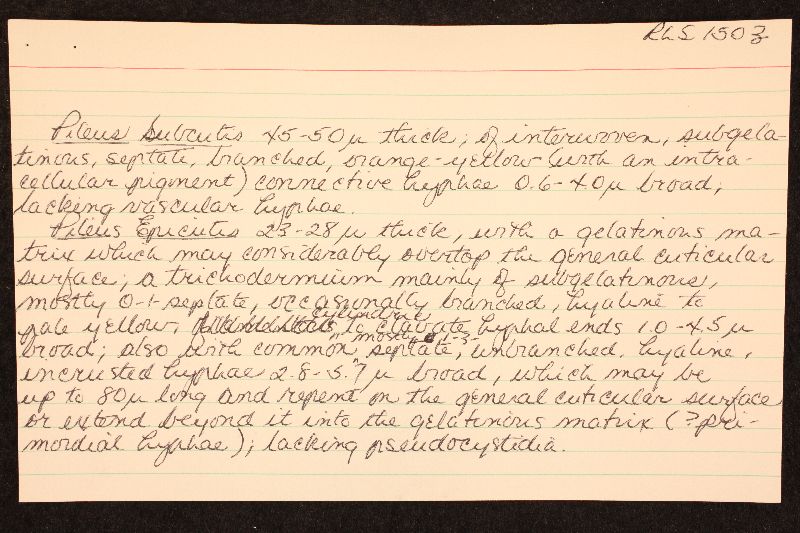 RLS 1503
Pileus Subcutis 45-50µ thick; of interwoven, subgela-
tinous, septate, branched, orange-yellow (with an intra-
cellular pigment) connective hyphae 0.6-4.0µ broad,
lacking vascular hyphae.
Pileus Epicutis 23-28µ thick, with a gelatinous ma-
trix which may considerably overtop the general cuticular
surface; a trichodermium mainly of subgelatinous,
mostly 0-1-septate, occasionally branched, hyaline to
cylindric
pale yellow, to clavate hyphal ends 1.0-4.5µ
mostly 1-3-
broad; also with common, septate, unbranched, hyaline,
incrusted hyphae 2.8-5.7µ broad, which may be
up to 80µ long and repent on the general cuticular surface
or extend beyond it into the gelatinous matrix (?pri-
mordial hyphae); lacking pseudocystidia.